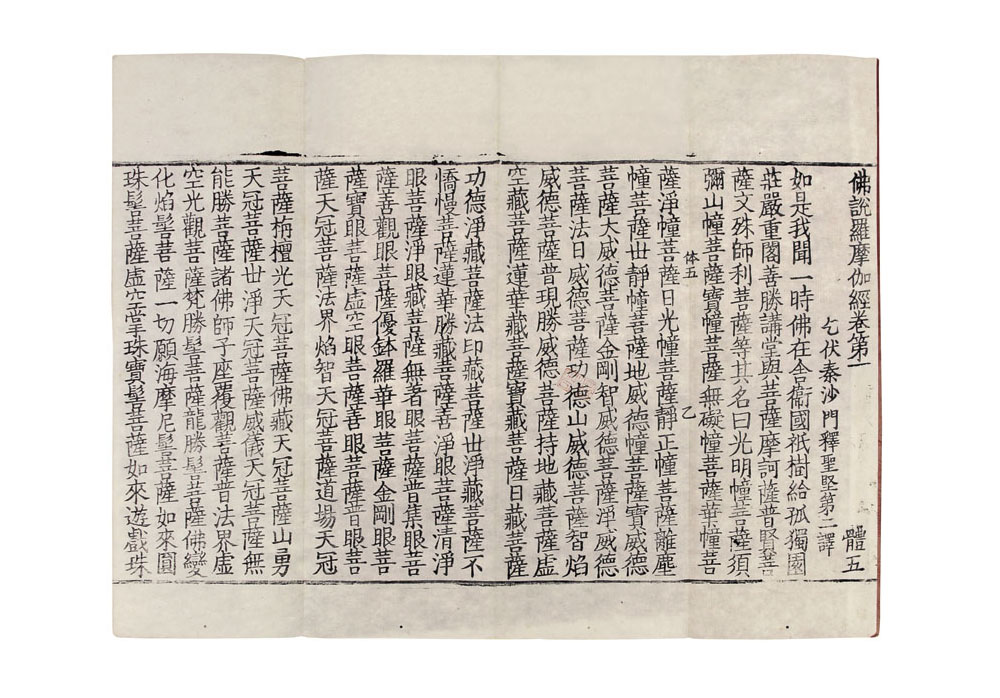 佛說羅摩伽經卷第一 體五
乞伏秦沙門釋聖堅第二譯
如是我聞一時佛在舍衞國祇樹給孤獨園
莊嚴重閣善勝講堂與菩薩摩訶薩普賢菩
薩文殊師利菩薩等其名曰光明幢菩薩須
彌山幢菩薩寶幢菩薩無礙幢菩薩華幢菩
体五 乙
薩淨幢菩薩日光幢菩薩靜正幢菩薩離塵
幢菩薩世靜幢菩薩地威德幢菩薩寶威德
菩薩大威德菩薩金剛智威德菩薩淨威德
菩薩法日威德菩薩功德山威德菩薩智焰
威德菩薩普現勝威德菩薩持地藏菩薩虛
空藏菩薩蓮華藏菩薩寶藏菩薩日藏菩薩
功德淨藏菩薩法印藏菩薩世淨藏菩薩不
憍慢菩薩蓮華勝藏菩薩善淨眼菩薩清淨
眼菩薩淨眼藏菩薩無著眼菩薩普集眼菩
薩善觀眼菩薩優鉢羅華眼菩薩金剛眼菩
薩寶眼菩薩虛空眼菩薩善眼菩薩普眼菩
薩天冠菩薩法界焰智天冠菩薩道場天冠
菩薩栴檀光天冠菩薩佛藏天冠菩薩山勇
天冠菩薩世淨天冠菩薩威儀天冠菩薩無
能勝菩薩諸佛師子座覆觀菩薩普法界虛
空光觀菩薩梵勝髻菩薩龍勝髻菩薩佛變
化焰髻菩薩一切願海摩尼髻菩薩如來圓
珠髻菩薩虛空莖珠寶髻菩薩如來遊戲珠